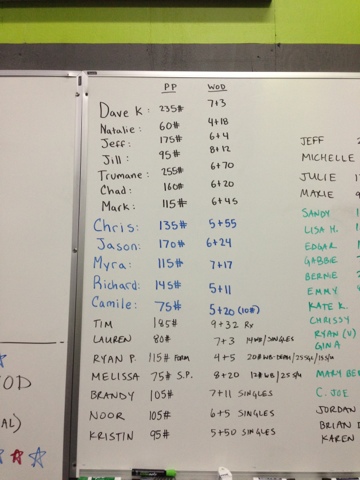 PP WOD
Dave K: 235# 7+3
Natalie: 60# 4+18
Jeff: 175# 6+4
Jill: 95# 8+12
Trumane: 255# 6+70
Chad: 160# 6+20
Mark: 115# 6+45
Chris: 135# 5+55
Jason: 170# 6+24
Myra: 115# 7+17
Richard: 145# 5+11
Camile: 75# 5+20 (10#)
TIM 185# 9+32 Rx
LAUREN 80# 7+3 14WB/SINGLES
RYAN P. 115# FORM 4+5
MELISSA 75# S.P. 8+20
BRANDY 105# 7+11 SINGLES
NOOR 105# 6+5 SINGLES
KRISTIN 95# 5+50 SINGLES
JEFF
MICHELLE
JULIE
MAXIE
SANDY
LISA H.
EDGAR
GABBIE
BERNIE
EMMY
KATE K.
CHRISSY
RYAN (V)
GINA
MARY BE
C. JOE
JORDAN
BRIAN
KAREN
OD
AL)